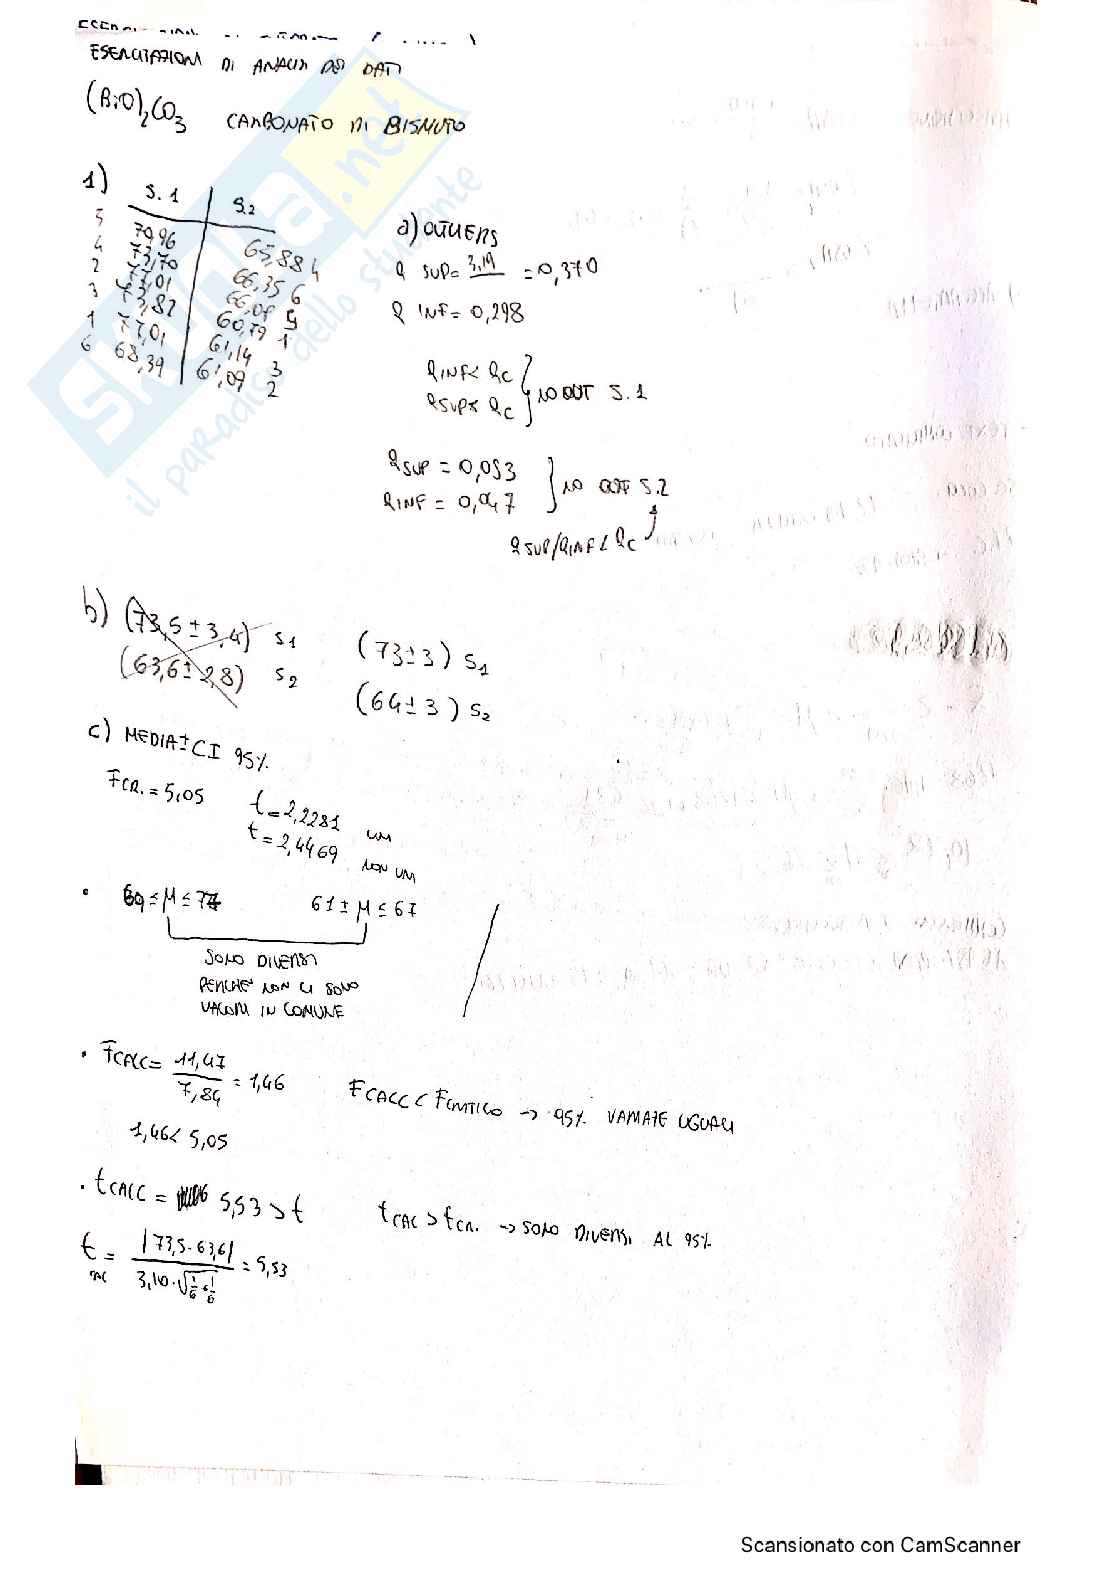 ESERCITAZIONI DI ANALISI DEI DATI
(BiO)2CO3 CARBONATO DI BISMUTO
1) S.1 S.2
5 70,96 65,88 4
4 73,70 66,35 6
2 77,01 66,08 5
3 73,82 60,79 1
1 77,01 61,14 3
6 68,39 61,09 2
a) OUTLIERS
Q SUP = 3,19 = 0,370
Q INF = 0,298
QINF< QC
QSUP< QC } NO OUT S.1
QSUP = 0,053
QINF = 0,047 } NO OUT S.2
QSUP/QINF < QC
b) (73,5 ± 3,4) S1 (73±3) S1
(63,6 ± 2,8) S2 (64 ± 3) S2
c) MEDIA ± CI 95%
FCR. = 5,05 t = 2,2281 UM
t = 2,4469 NON UM
• 69 ≤ μ ≤ 77 61 ± μ ≤ 67
SONO DIVERSI
PERCHE' NON CI SONO
VALORI IN COMUNE
• FCALC = 11,47 / 7,84 = 1,46 FCALC < FCRITICO → 95% VARIATE UGUALI
1,46< 5,05
• tCALC = 5,53 > t tCAL > tCR. → SONO DIVERSI AL 95%
t = |73,5-63,6| / 3,10 · √1/6 + 1/6 = 5,53
skuola.net
il paradiso dello studente
Scansionato con CamScanner